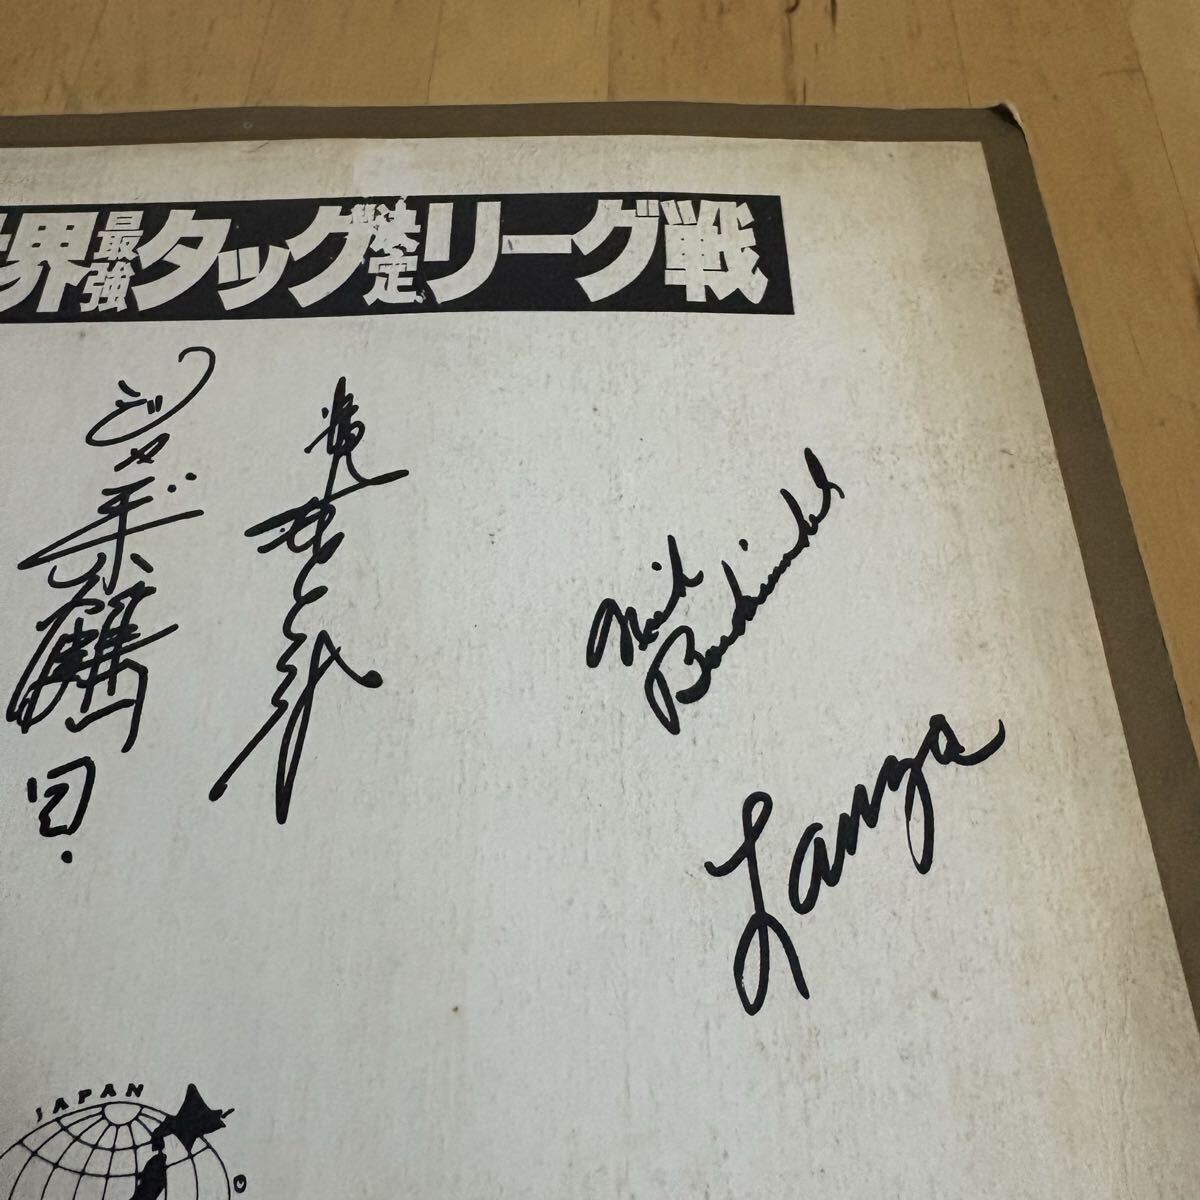 世界最強タッグ決定リーグ戦
ジャンボ鶴田
Nick
Bockwinkel
Lanza
JAPAN